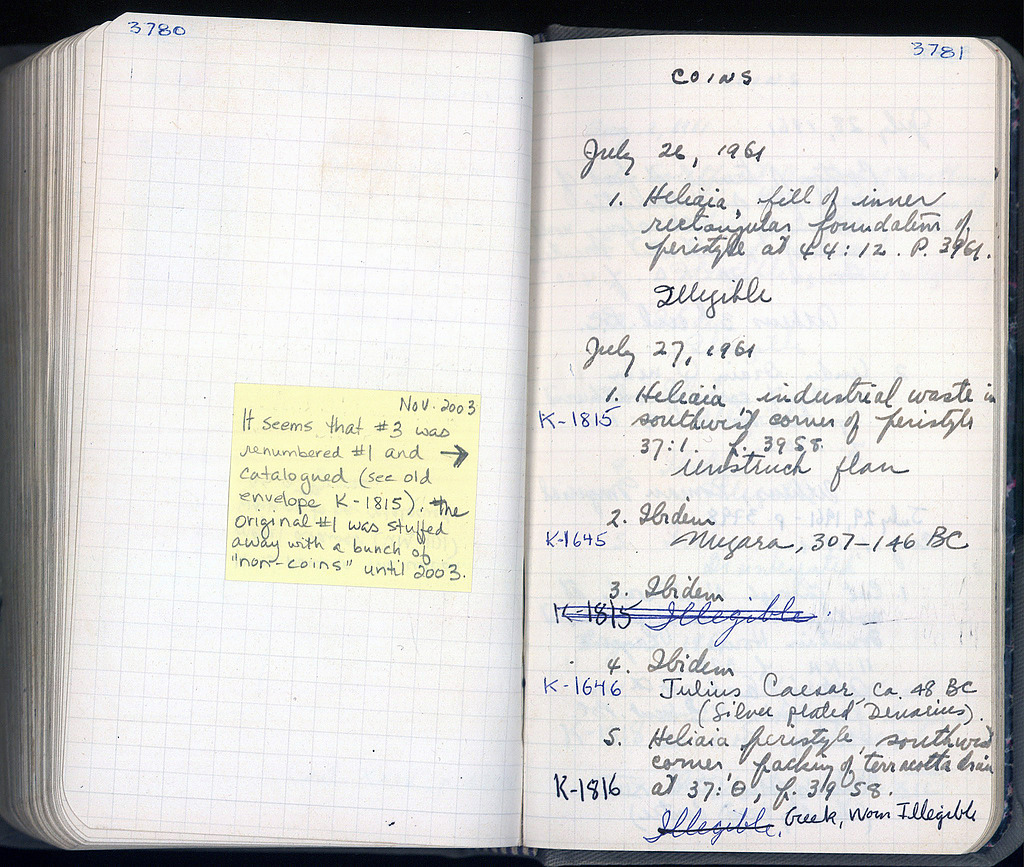 3780
Nov. 2003
It seems that #3 was
renumbered #1 and →
catalogued (see old
envelope K-1815). The
original #1 was stuffed
away with a bunch of
"non-coins" until 2003.
3781
COINS
July 26, 1961
1. Heliaia, fill of inner
rectangular foundation of
peristyle at 44:12. P. 3961.
Illegible
July 27, 1961
1. Heliaia industrial waste in
K-1815 southwest corner of peristyle
37:1. p. 3958.
unstruck flan
2. Ibidem
K-1645 Megara, 307–146 BC
3. Ibidem
K-1815 Illegible
4. Ibidem
K-1646 Julius Caesar, ca. 48 BC
(Silver plated Denarius).
5. Heliaia peristyle, southwest
corner packing of terracotta drain
K-1816 at 37:Θ, p. 3958.
Illegible. Greek, Worn Illegible